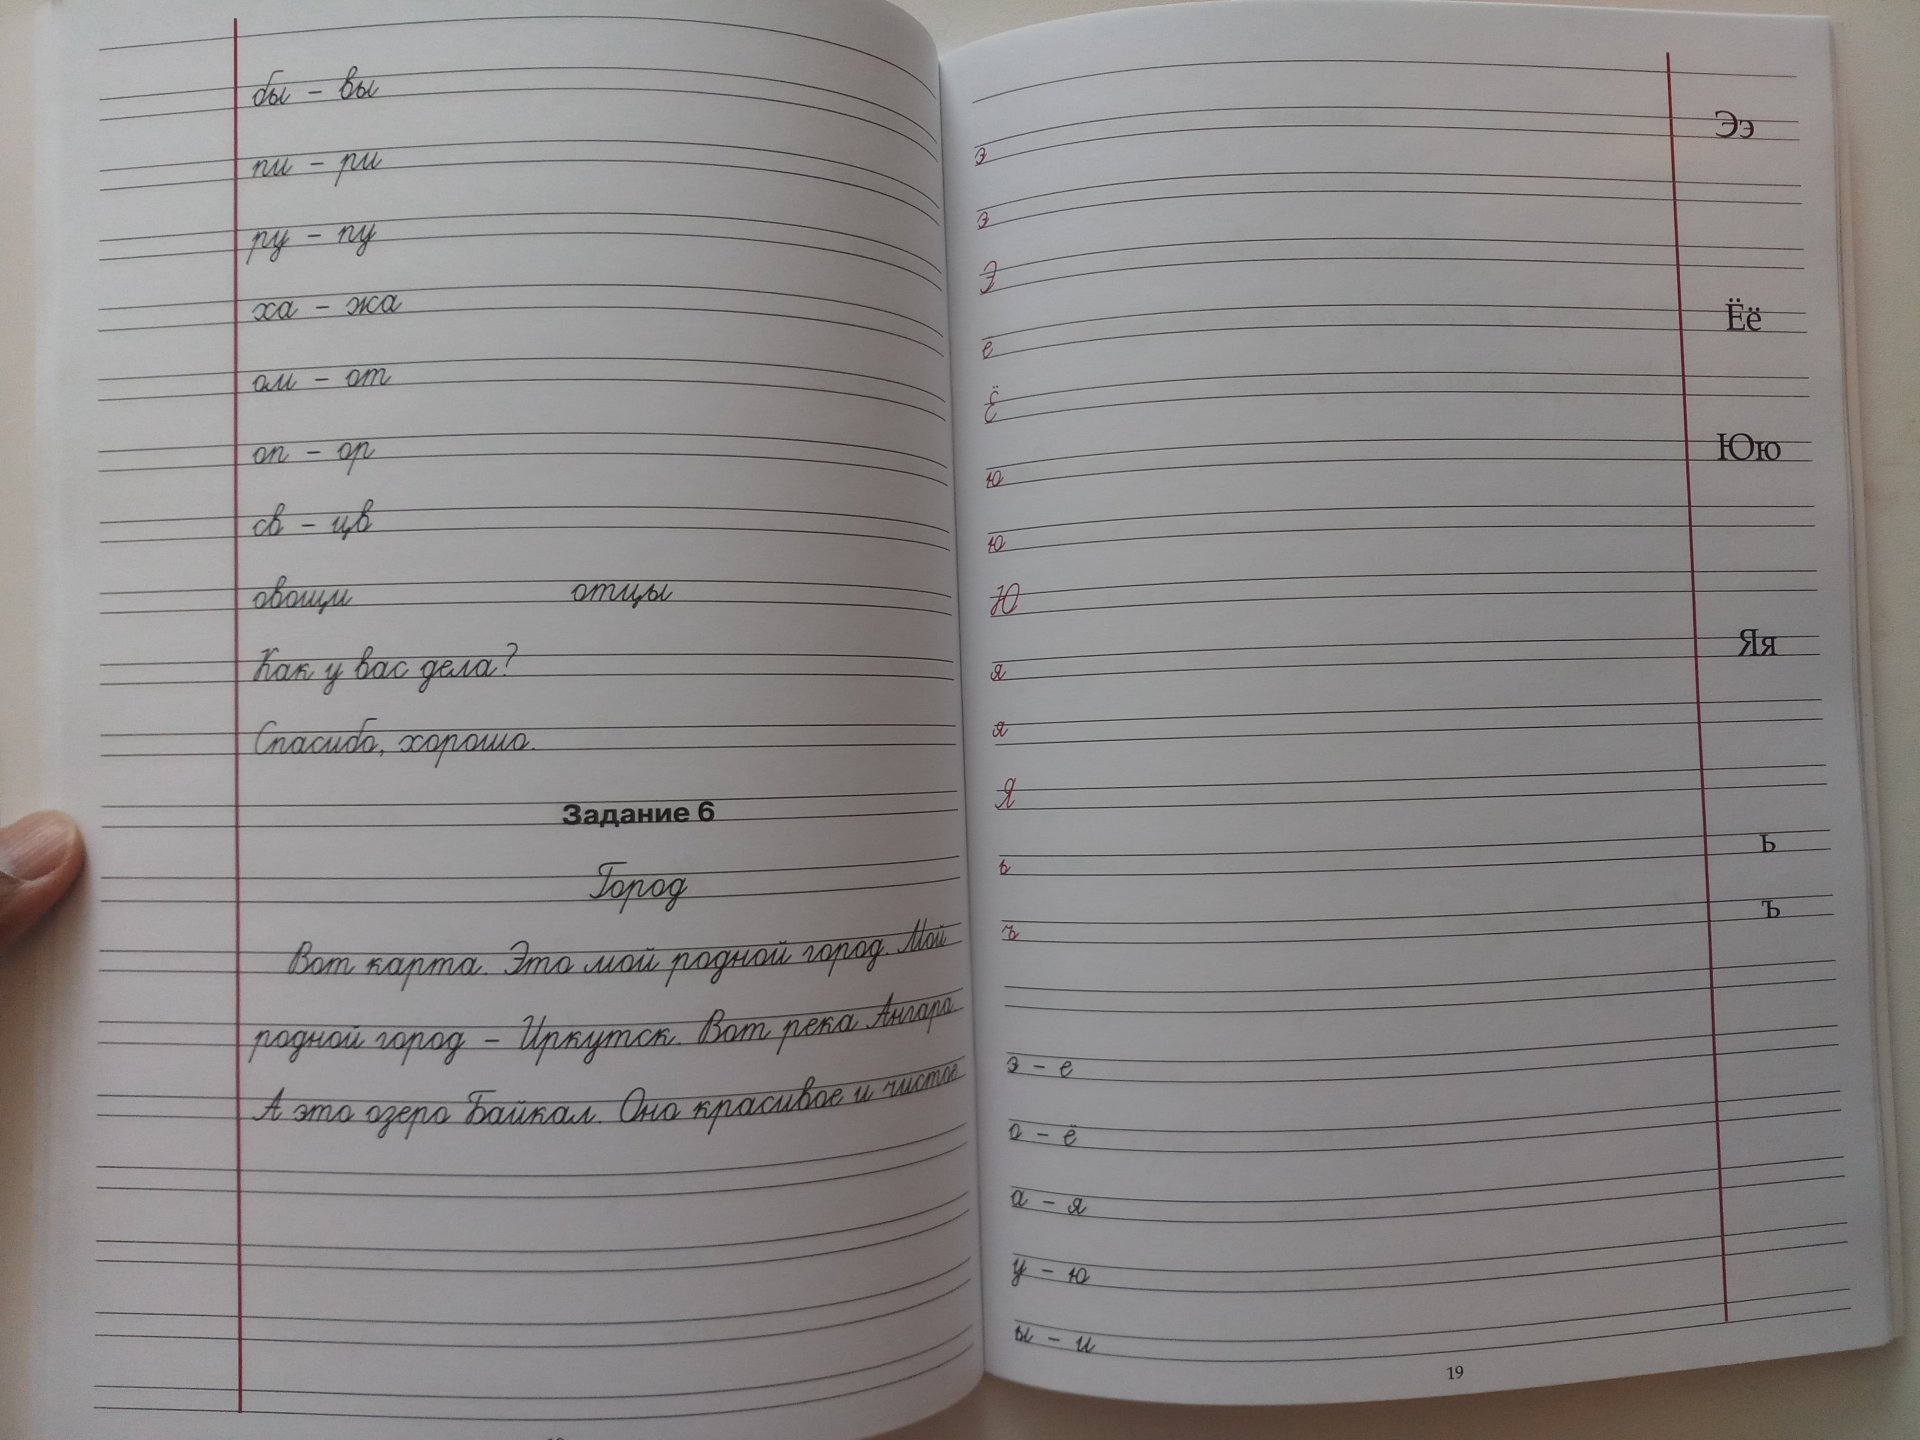 бы – вы
пи – ри
ру – пу
ха – жа
ом – от
оп – ор
св – цв
овощи отцы
Как у вас дела?
Спасибо, хорошо.
Задание 6
Город
Вот карта. Это мой родной город. Мой
родной город – Иркутск. Вот река Ангара.
А это озеро Байкал. Оно красивое и чистое.
Ээ
э
э
Э
Ёё
е
Ё
Юю
ю
ю
Ю
Яя
я
я
Я
ь
ь
ъ
ъ
э – е
о – ё
а – я
у – ю
ы – и
19